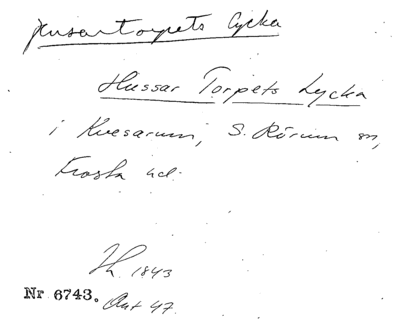 Husartorpets Lycka
Hussar Torpets Lycka
i Kvesarum, S. Rörum sn,
Frosta hd.
Jh. 1843
Nr 6743. Akt 47.